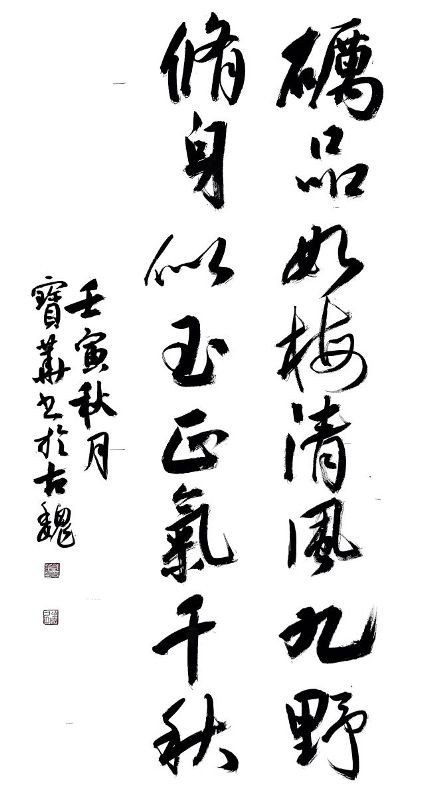 礪品如梅清風九野
脩身似玉正氣千秋
壬寅秋月
寶華書於古魏